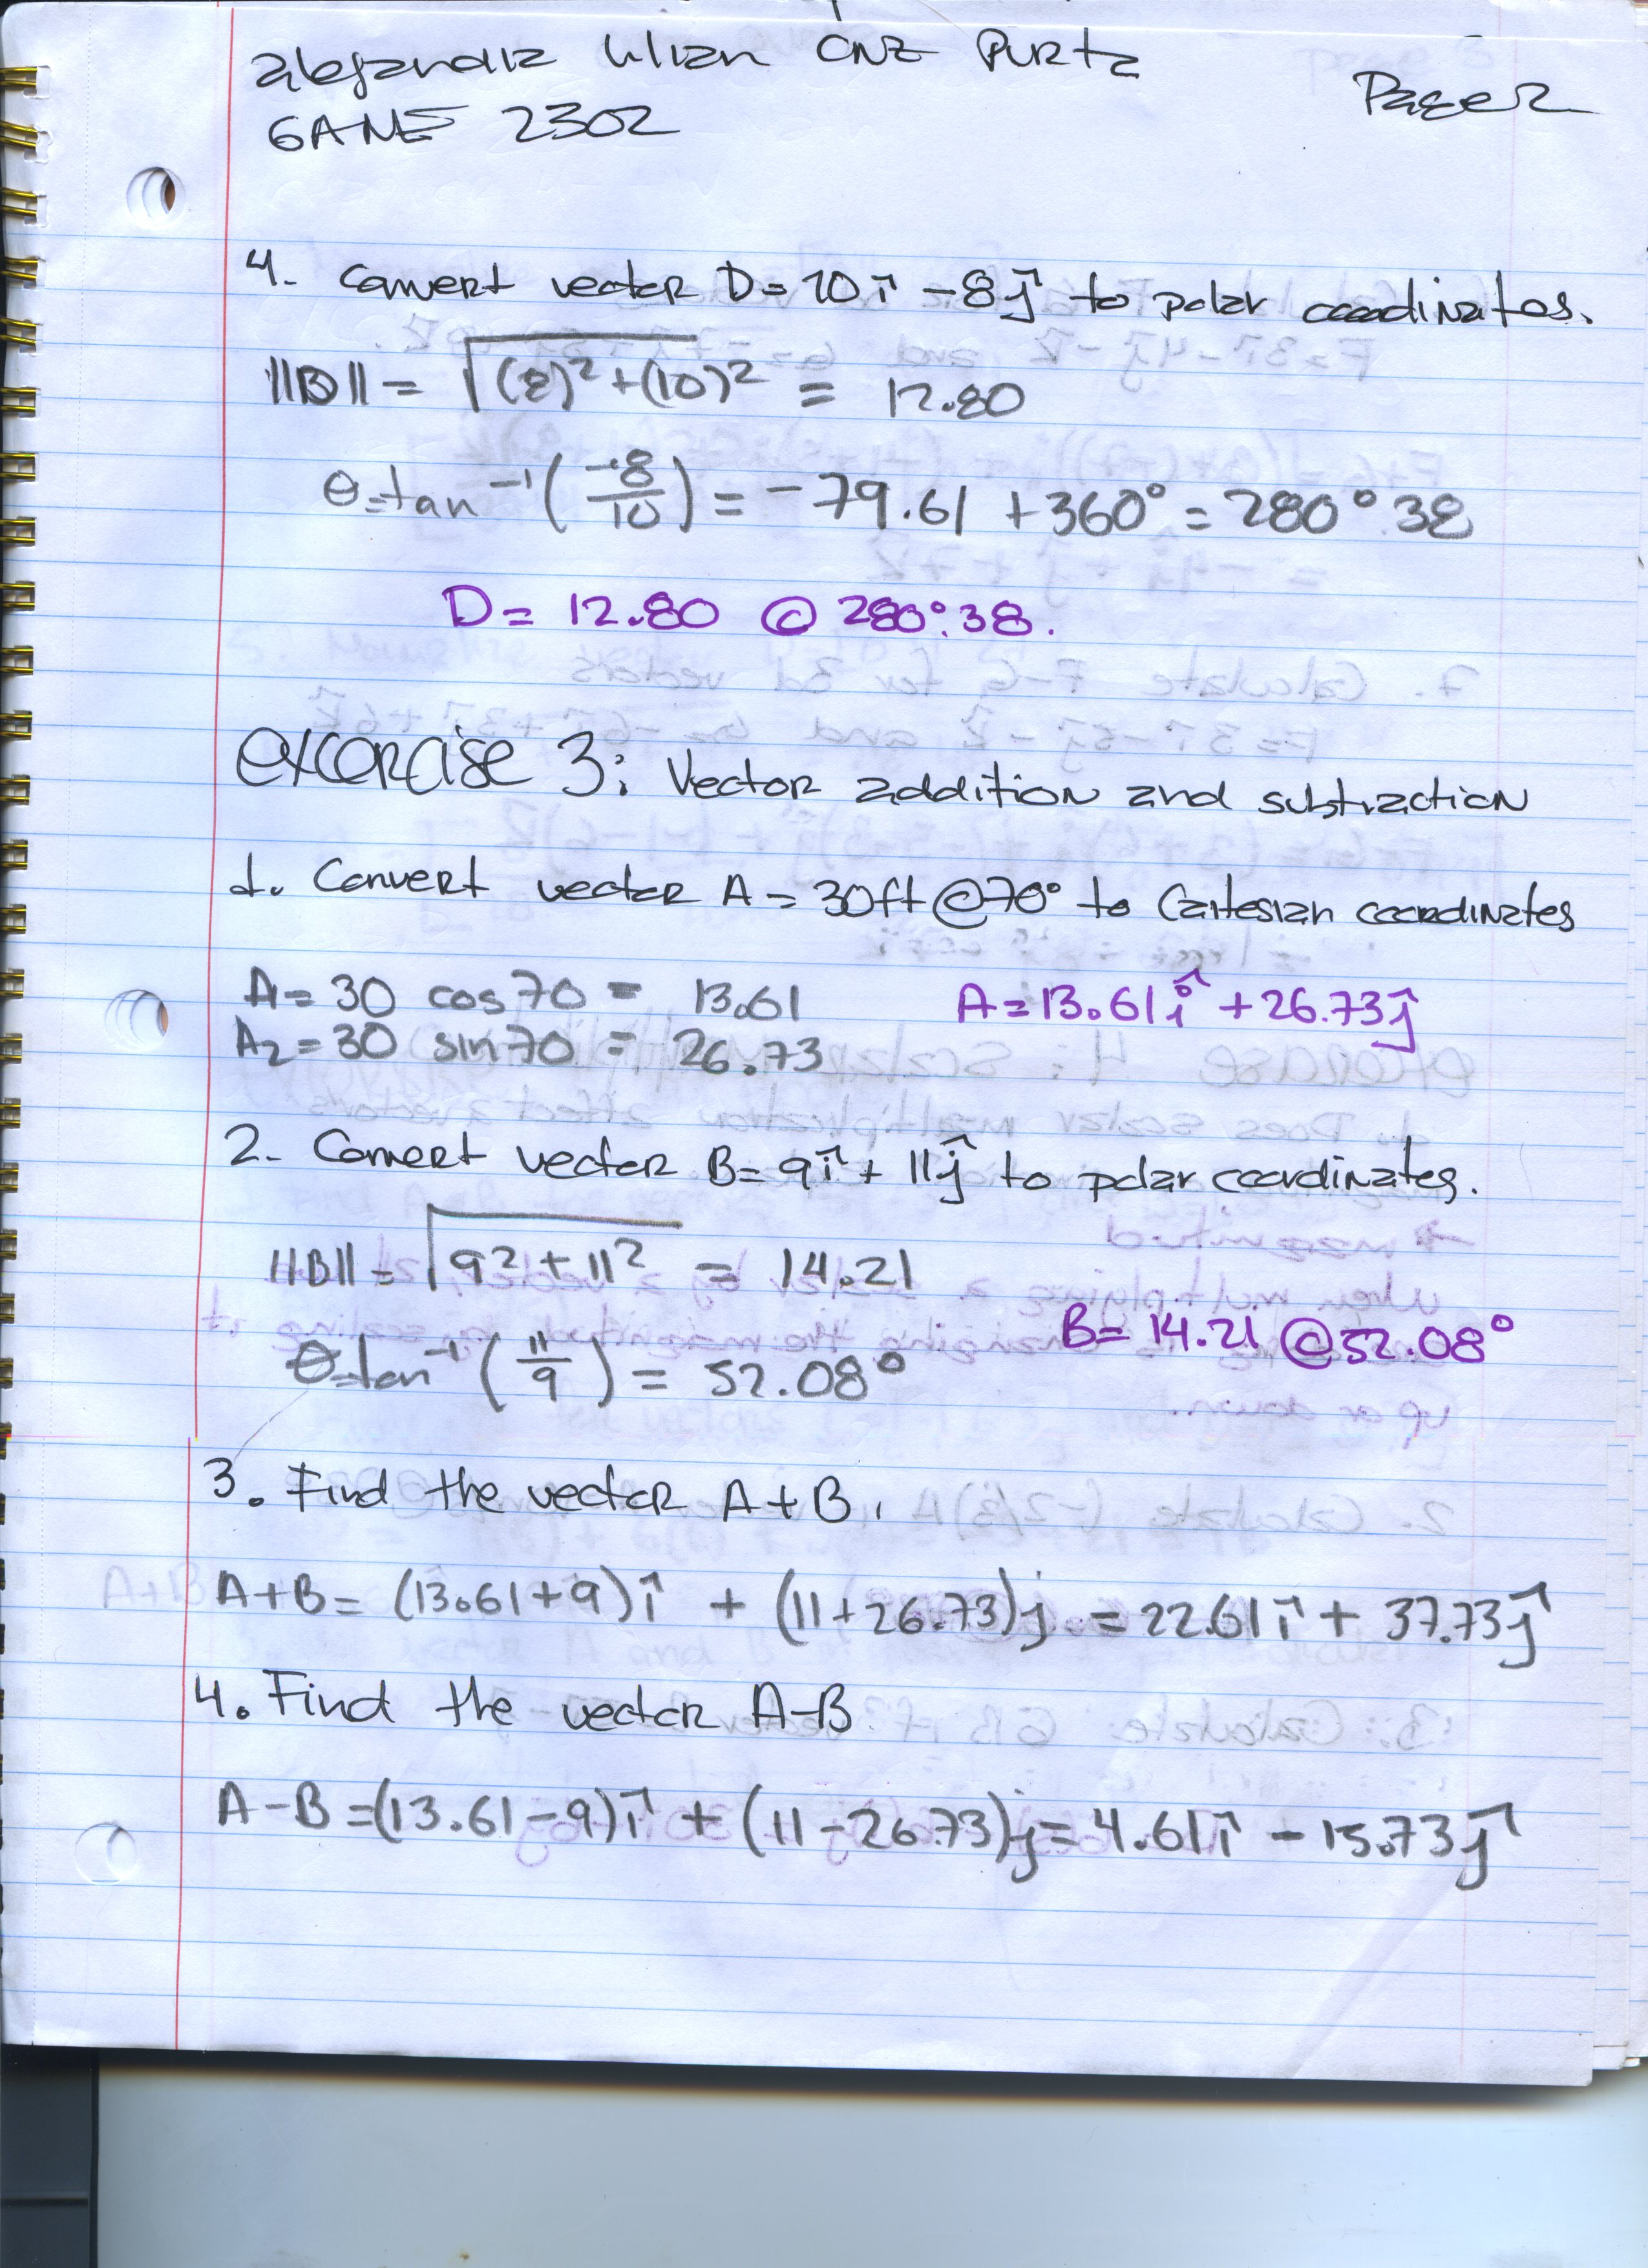 alejandra lilian CNZ Purta
GAME 2302
Page 2
4. Convert vector D = 10î - 8ĵ to polar coordinates.
||D|| = √(8)² + (10)² = 12.80
θ = tan⁻¹ (-8/10) = -79.61 + 360° = 280°38
D = 12.80 @ 280°.38.
exercise 3: Vector addition and subtraction
1. Convert vector A = 30ft @ 70° to Cartesian coordinates
A1 = 30 cos 70 = 13.61
A = 13.61î + 26.73ĵ
A2 = 30 sin 70 = 26.73
2. Convert vector B = 9î + 11ĵ to polar coordinates.
||B|| = √9² + 11² = 14.21
B = 14.21 @ 52.08°
θ = tan⁻¹ (11/9) = 52.08°
3. Find the vector A + B.
A + B = (13.61 + 9)î + (11 + 26.73)j = 22.61î + 37.73ĵ
4. Find the vector A - B
A - B = (13.61 - 9)î + (11 - 26.73)j = 4.61î - 15.73ĵ